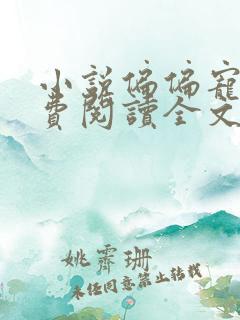 小説偏偏寵
費閱讀全文
姚霽珊
未經同意禁止轉載